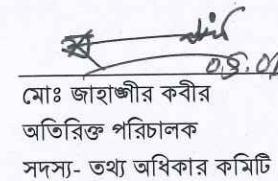 ০৪.০৭
মোঃ জাহাঙ্গীর কবীর
অতিরিক্ত পরিচালক
সদস্য- তথ্য অধিকার কমিটি